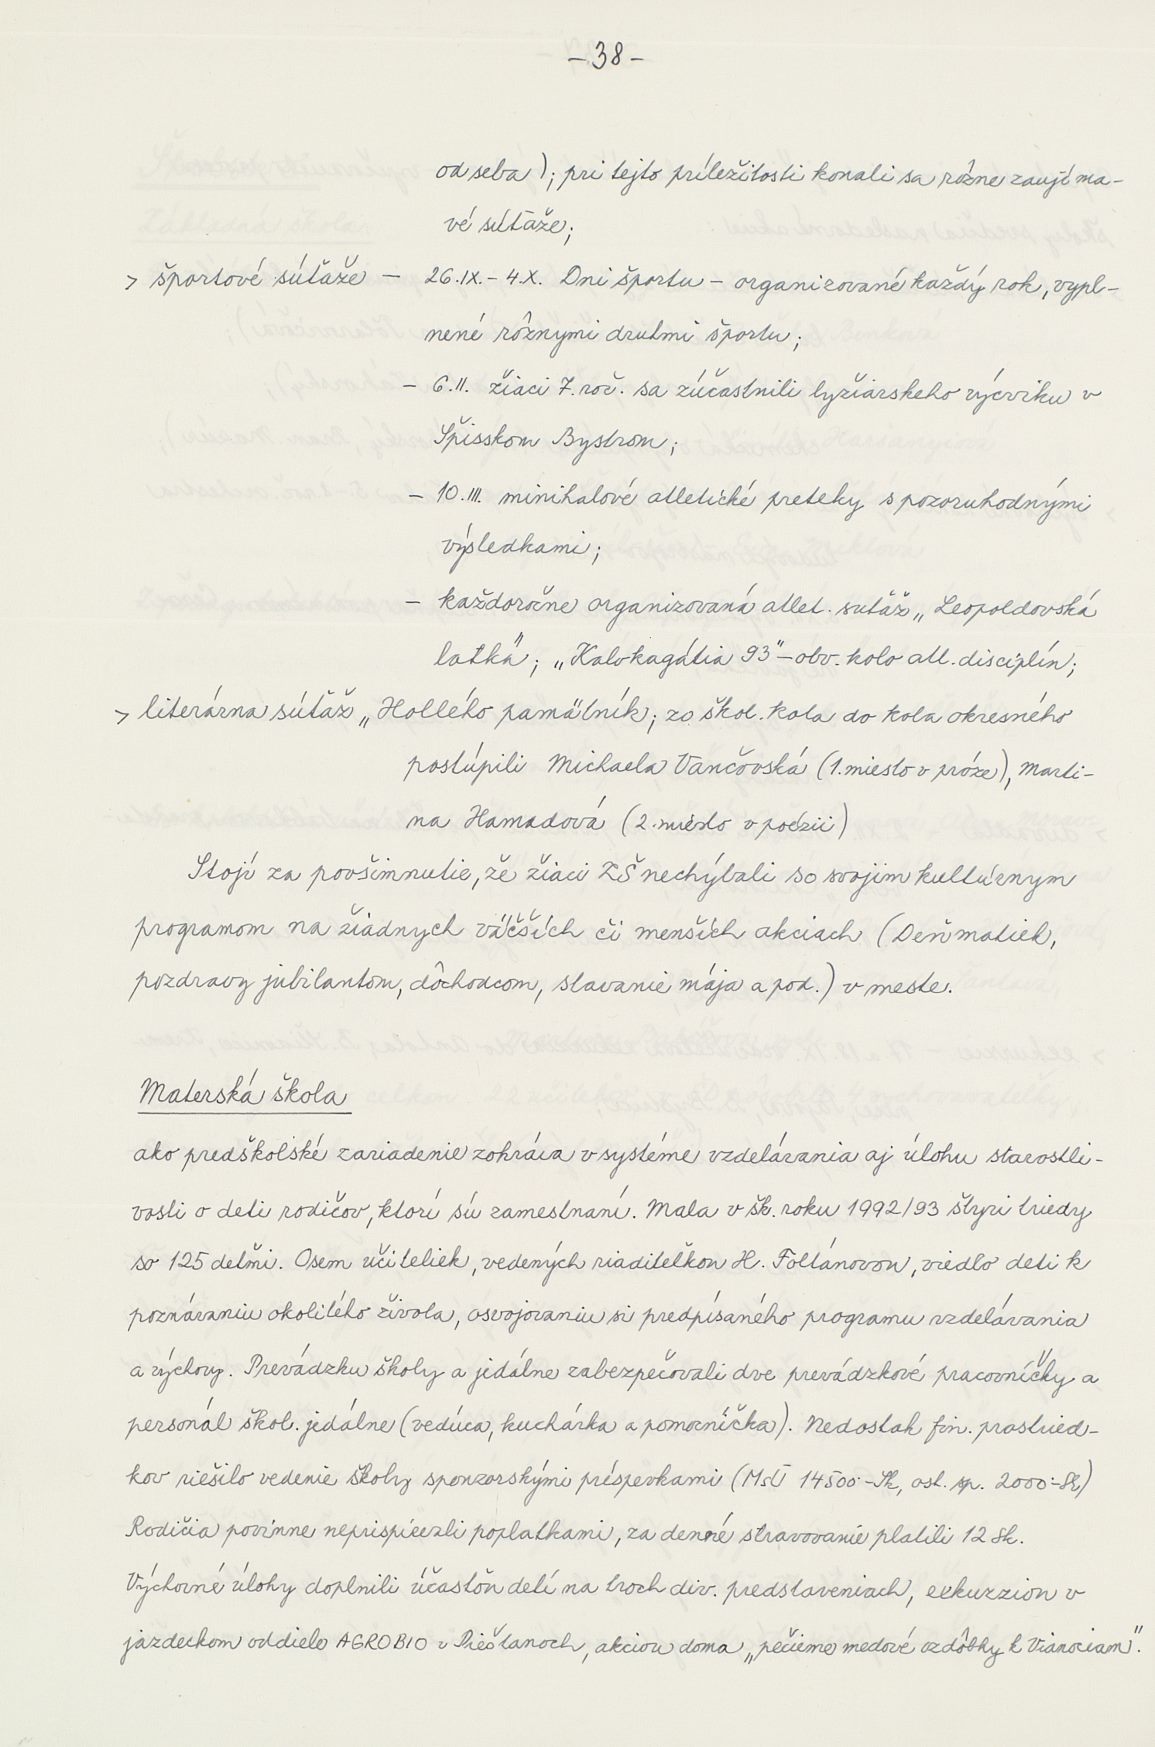 – 38 –
od seba); pri tejto príležitosti konali sa rôzne zaují ma-
vé súťaže;
> športové súťaže – 26.IX. – 4.X. Dni športu – organizované každý rok, vypl-
nené rôznymi druhmi športu;
– 6.II. žiaci 7. roč. sa zúčastnili lyžiarskeho výcviku v
Spišskom Bystrom;
– 10.III. minihalové atletické preteky s pozoruhodnými
výsledkami;
– každoročne organizovaná atlet. sutăž „Leopoldovská
latka"; „Kalokagátia 93" – obv. kolo atl. disciplín;
> literárna súťaž „Hollého pamätník; zo škol. kola do kola okresného
postúpili Michaela Vančovská (1. miesto v próze), Marti-
na Hamadová (2. miesto v poézii)
Stojí za povšimnutie, že žiaci ZŠ nechýbali so svojim kultúrnym
programom na žiadnych väčších či menších akciach (Deň matiek,
pozdravy jubilantom, dôchodcom, stavanie mája a pod.) v meste.
Materská škola
ako predškolské zariadenie zohráva v systéme vzdelávania aj úlohu starostli-
vosti o deti rodičov, ktorí sú zamestnaní. Mala v šk. roku 1992/93 štyri triedy
so 125 deťmi. Osem učiteliek, vedených riaditeľkou H. Foltánovou, viedlo deti k
poznávaniu okolitého života, osvojovaniu si predpísaného programu vzdelávania
a výchovy. Prevádzku školy a jedálne zabezpečovali dve prevádzkové pracovníčky a
personál škol. jedálne (vedúca, kuchárka a pomocníčka). Nedostak fin. prostried-
kov riešilo vedenie školy sponzorskými príspevkami (MsÚ 14500.-Sk, ost. sp. 2000.-Sk)
Rodičia povinne neprispievali poplatkami, za denné stravovanie platili 12 Sk.
Výchovné úlohy doplnili účasťou detí na troch div. predstaveniach, exkurziou v
jazdeckom oddiele AGROBIO v Piešťanoch, akciou doma „pečieme medové ozdôbky k Vianociam".